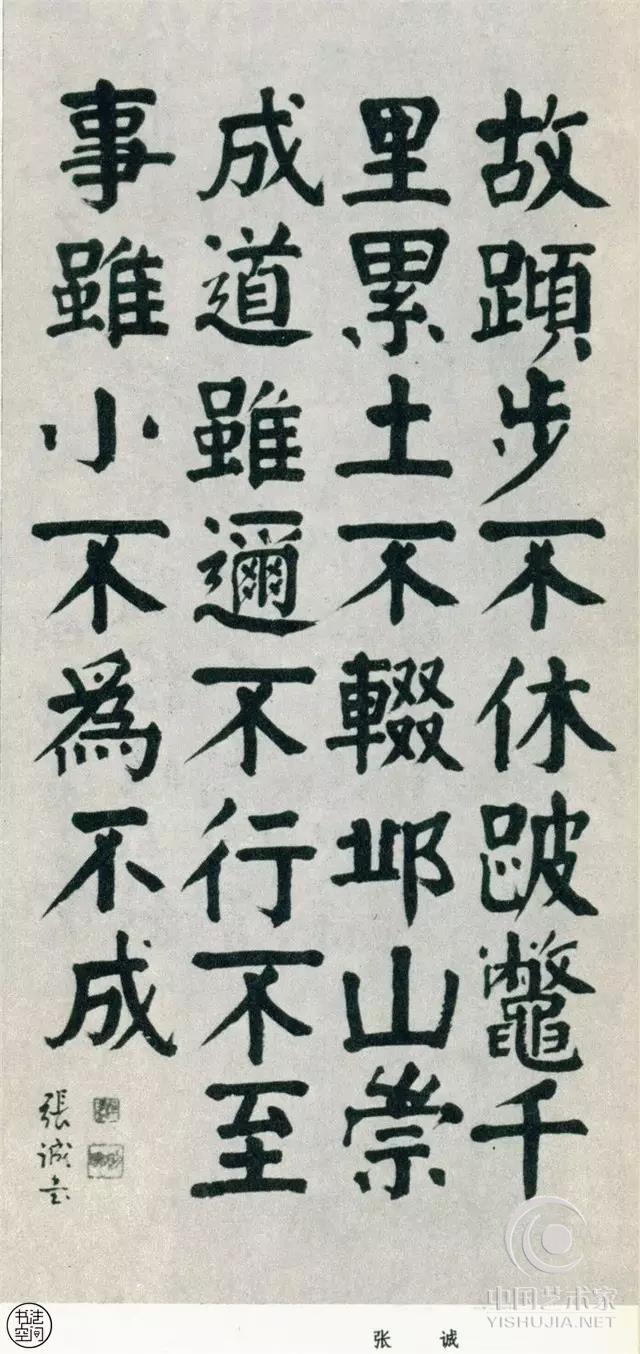 故蹞步不休跛鼈千
里累土不輟邱山崇
成道雖邇不行不至
事雖小不為不成
張誠书
张 诚
书法
空间
中国艺术家
YISHUJIA.NET